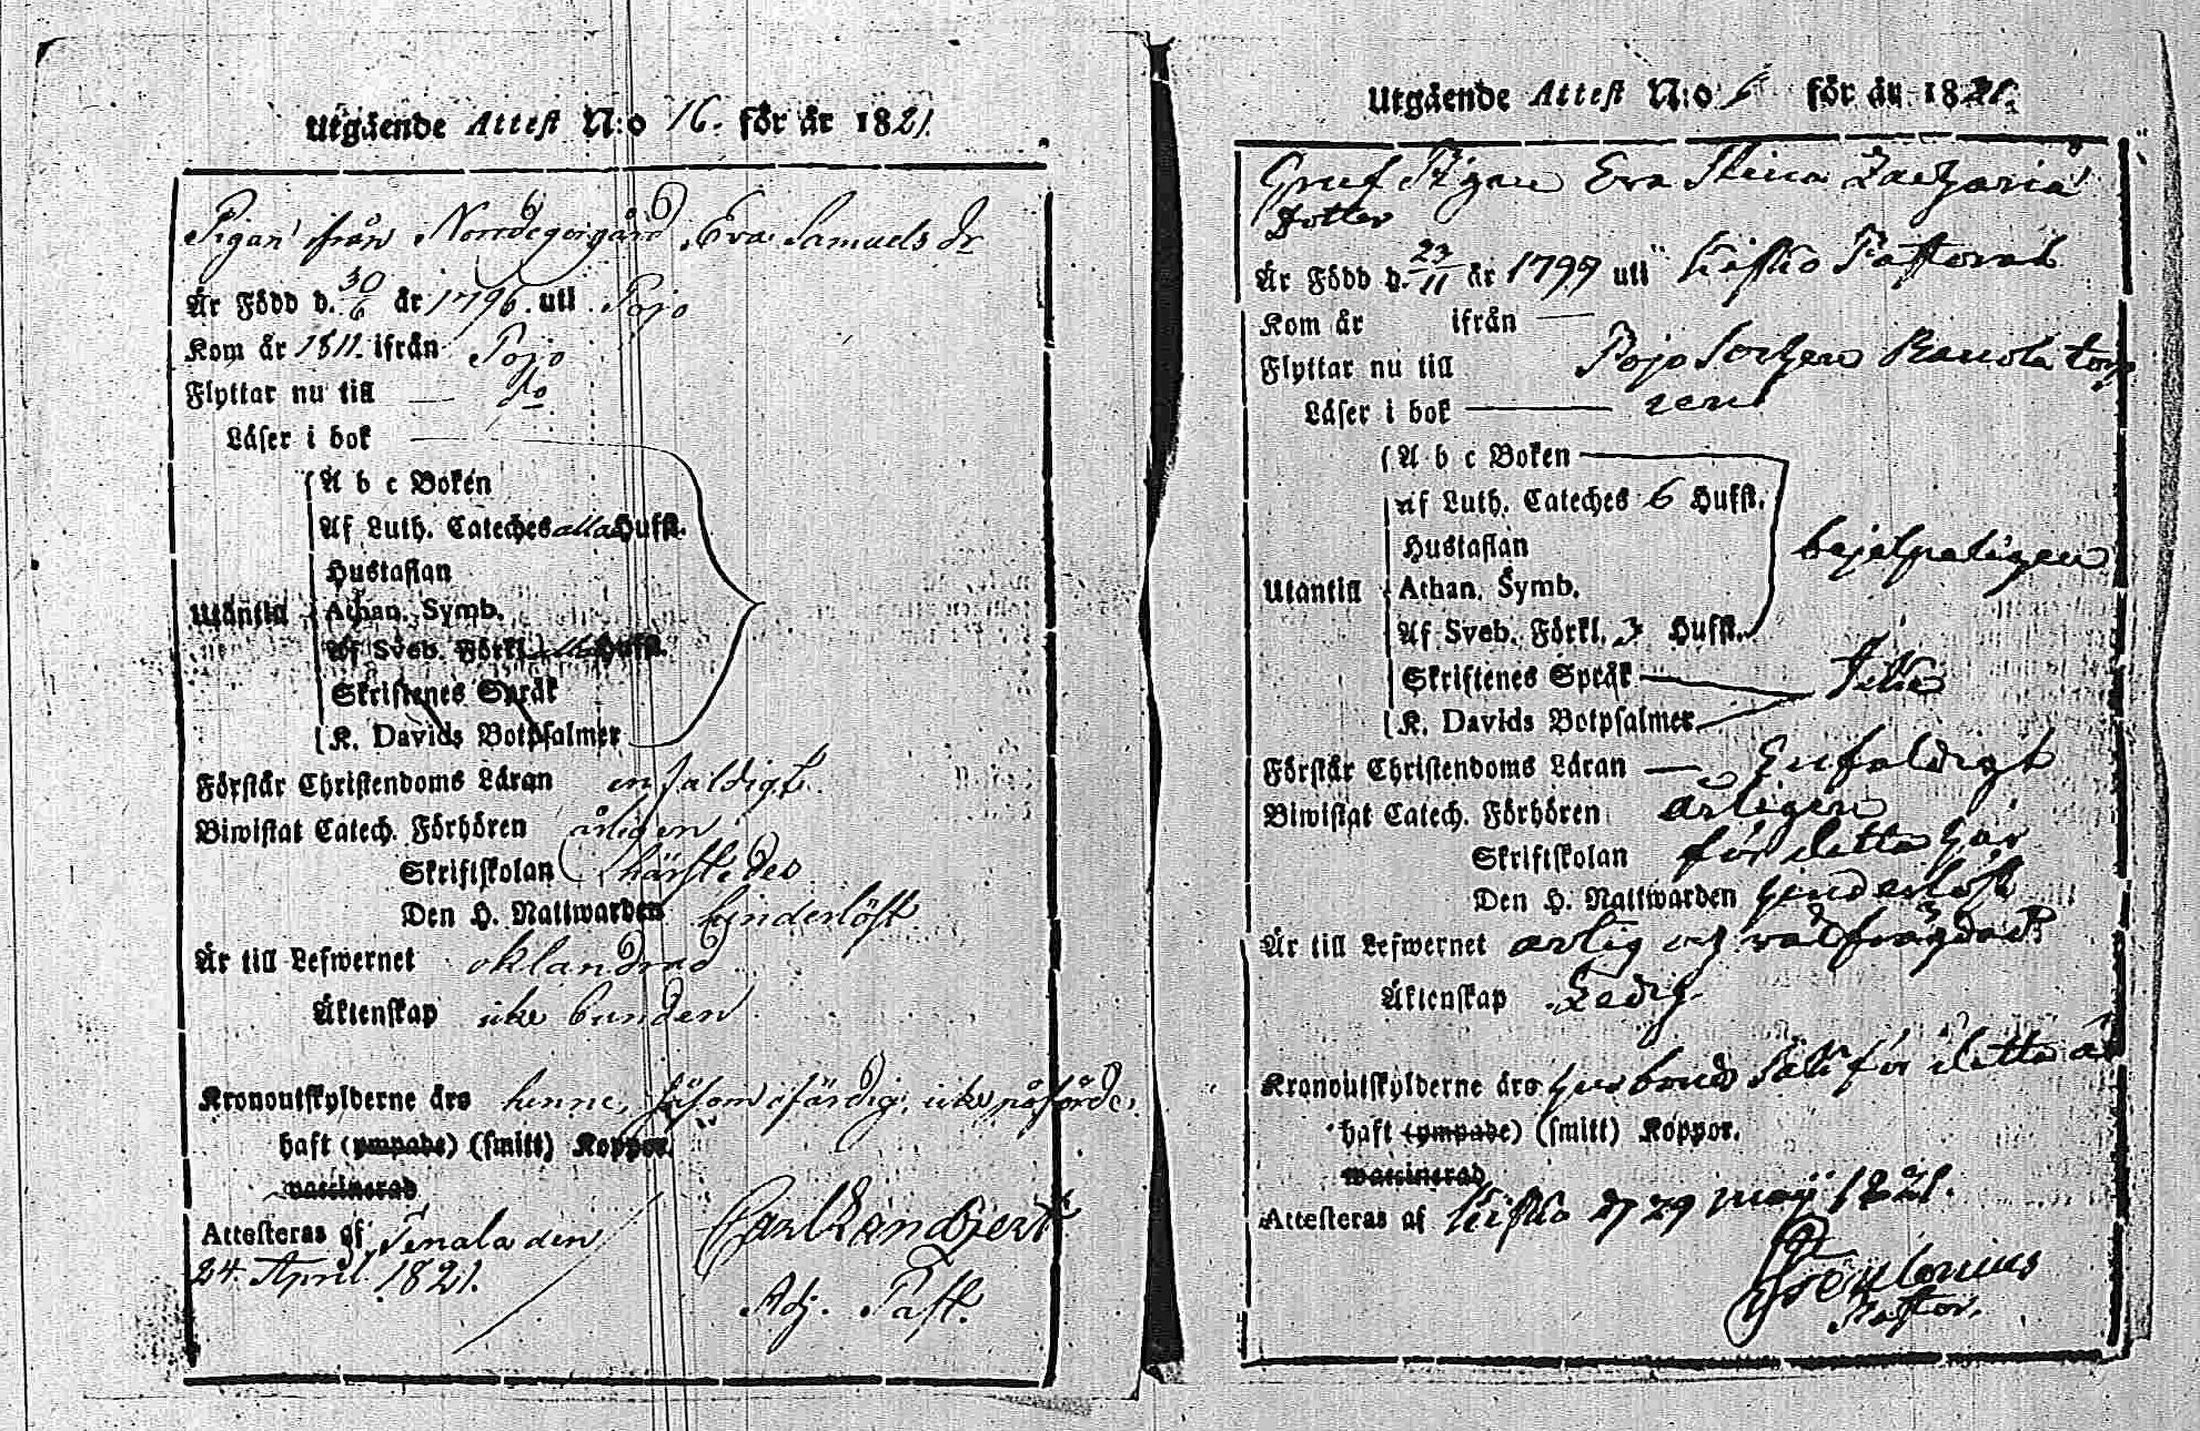 Utgående Attest N:o 16. för år 1821.
Pigan ifrån Norrdegergård Eva Samuels dr
Är Född d. 30/6 år 1796. uti Pojo
Kom år 1811. ifrån Pojo
Flyttar nu till — do
Läser i bok
A b c Boken
Af Luth. Cateches alla Hufst.
Hustaflan
Utantill Athan. Symb.
Af Sveb. Förkl. alla Hufst.
Skriftenes Språk
K. Davids Botpsalmer
Förstår Christendoms Läran enfaldigt
Biwistat Catech. Förhören årligen
Skriftskolan härstedes
Den H. Nattwarden hinderlöst
Är till Lefwernet oklandrad
Äktenskap icke bunden
Kronoutskylderne äro henne, såsom ofärdig, icke påförde.
haft (ympade) (smitt) Koppor.
vaccinerad
Attesteras af Tenala den
24. April 1821.
Adj. Past.
Utgående Attest N:o 6 för år 1821.
Pigan Eva Stina Zachariæ
Dotter
Är Född d. 23/11 år 1799 uti Kisko Pastorat
Kom år ifrån —
Flyttar nu till Pojo Sochen torp
Läser i bok — rent
A b c Boken
Af Luth. Cateches 6 Hufst.
Hustaflan
Utantill Athan. Symb.
Af Sveb. Förkl. 3 Hufst.
Skriftenes Språk
K. Davids Botpsalmer
Förstår Christendoms Läran — Enfaldigt
Biwistat Catech. Förhören årligen
Skriftskolan för detta här
Den H. Nattwarden hinderlöst
Är till Lefwernet ärlig och välfrägdad
Äktenskap Ledig.
Kronoutskylderne äro för detta år
haft (ympade) (smitt) Koppor.
waccinerad
Attesteras af Kisko d 29 maij 1821.
Pastor.